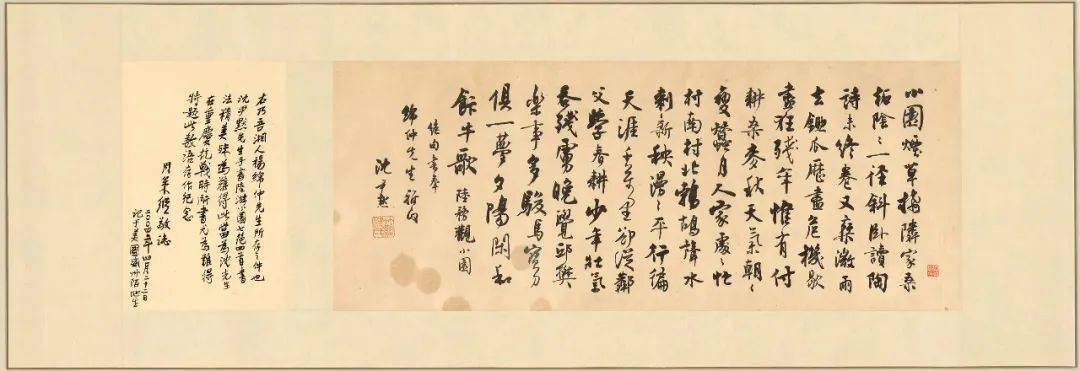 小園煙草接隣家桑
柘陰〻一徑斜臥讀陶
詩未終卷又乘微雨
去鋤瓜歷盡危機歇
盡狂殘年惟有付
耕桑麥秋天氣朝〻
變蠶月人家處〻忙
村南村北鵓鴣聲水
刺新秧漫〻平行徧
天涯千萬里卻從鄰
父學春耕少年壯氣
吞殘虜晚覺邱樊
樂事多駿馬寶刀
俱一夢夕陽閑和
飯牛歌 陸務觀小園
書奉
綿仲先生
沈尹默
右乃吾湘人楊綿仲先生所存之件也
沈尹默先生手書陸游小園七絕四首書
法精美獲得此當為沈先生
在重慶抗戰時所書尤為難得
特題此數語存作紀念
周策縱敬誌
二〇〇四年四月二十二日
記于美國威州陌地生